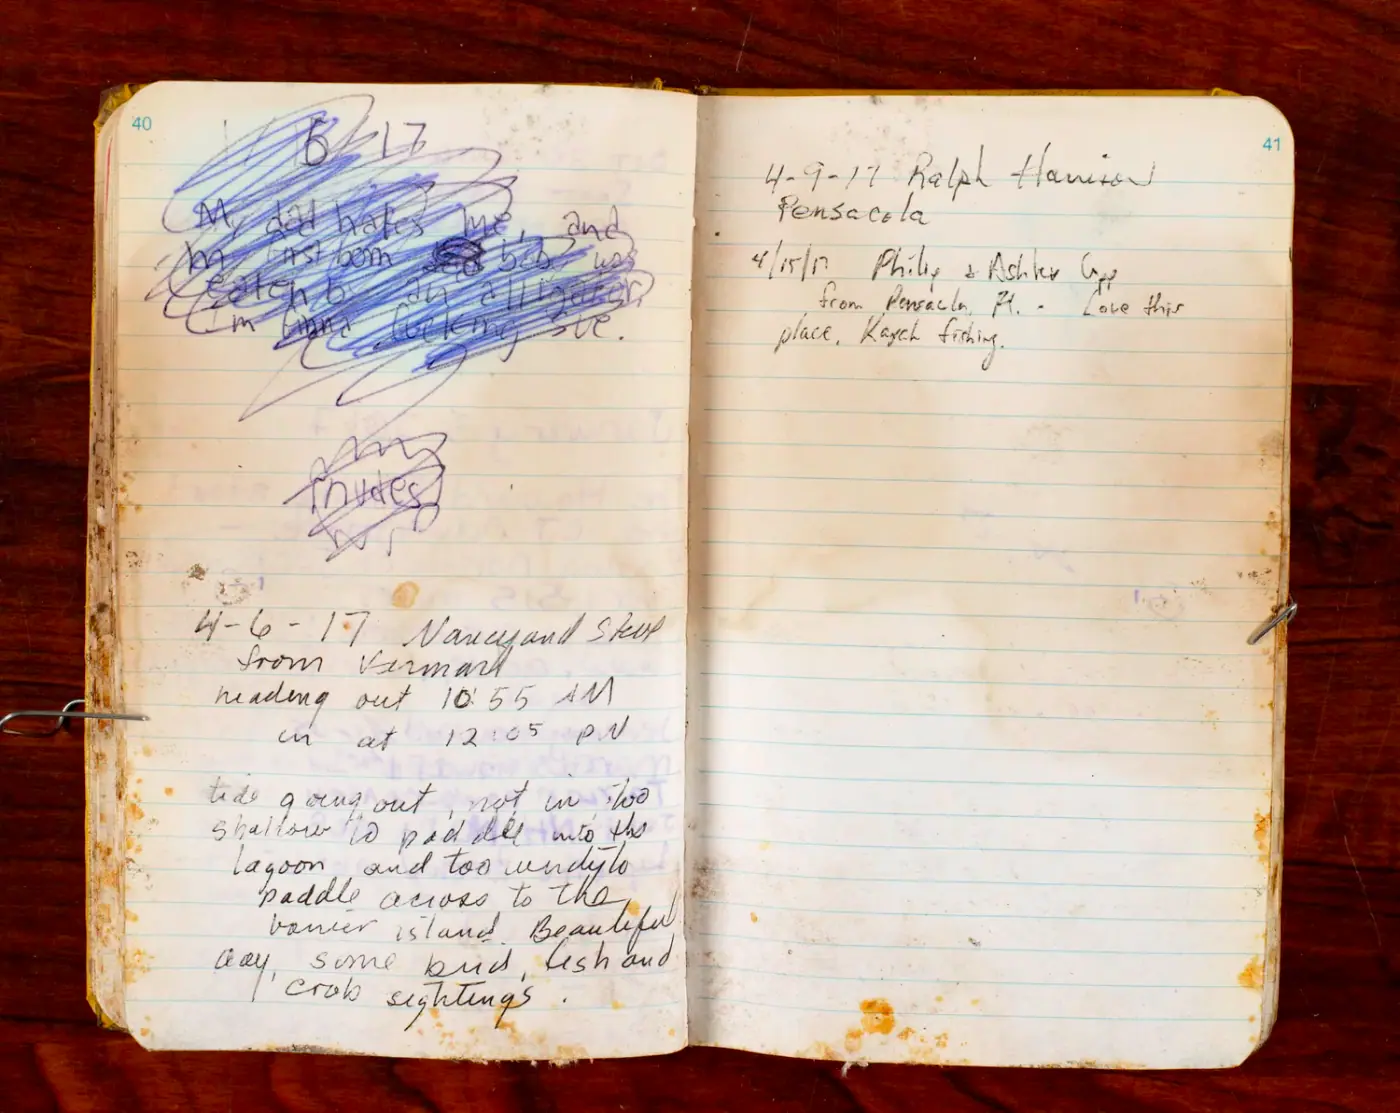 40
5 17
My dad hates me, and
my first born bob was
eaten by an alligator.
I'm gonna fucking sue.
nudes
4-6-17 Nancy and Steve
from Vermont
heading out 10:55 AM
in at 12:05 PM
tide going out, not in, too
shallow to paddle into the
lagoon and too windy to
paddle across to the
barrier island. Beautiful
day, some bird, fish and
crab sightings.
41
4-9-17 Ralph Harrison
Pensacola
4/15/17 Philip & Ashley
from Pensacola, Fl. - Love this
place, Kayak fishing.